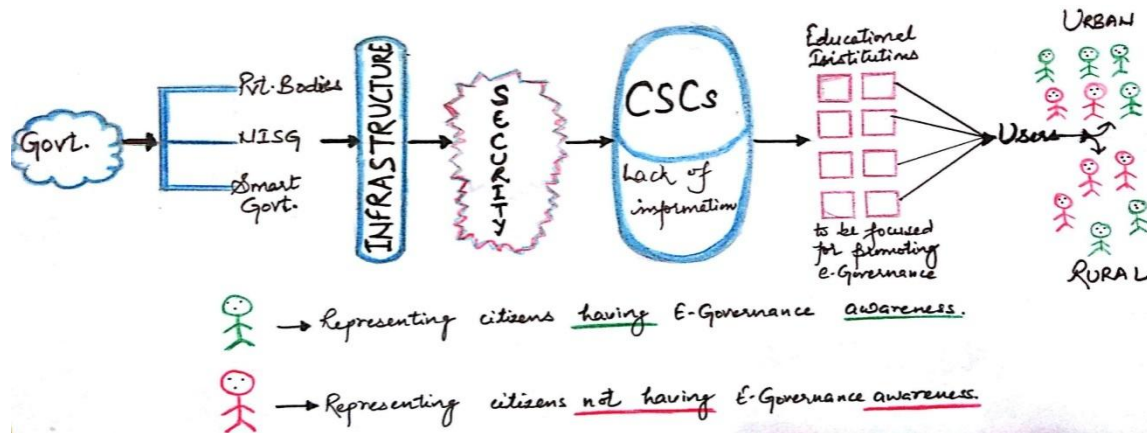 Govt.
Pvt. Bodies
NISG
Smart
Govt.
INFRASTRUCTURE
SECURITY
CSCs
Lack of
information
Educational
Institutions
to be focused
for promoting
e-Governance
Users
URBAN
RURAL
Representing citizens having E-Governance awareness.
Representing citizens not having E-Governance awareness.